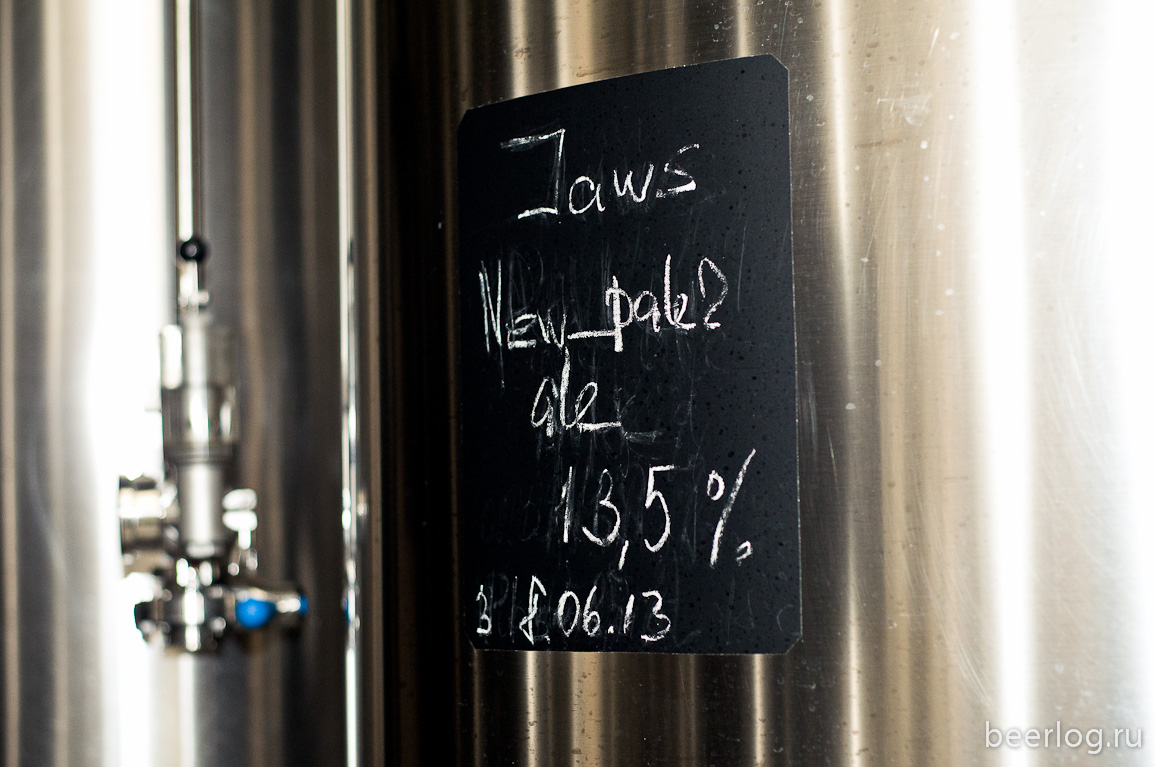 Jaws
New pale
ale
13,5 %
06.13
beerlog.ru